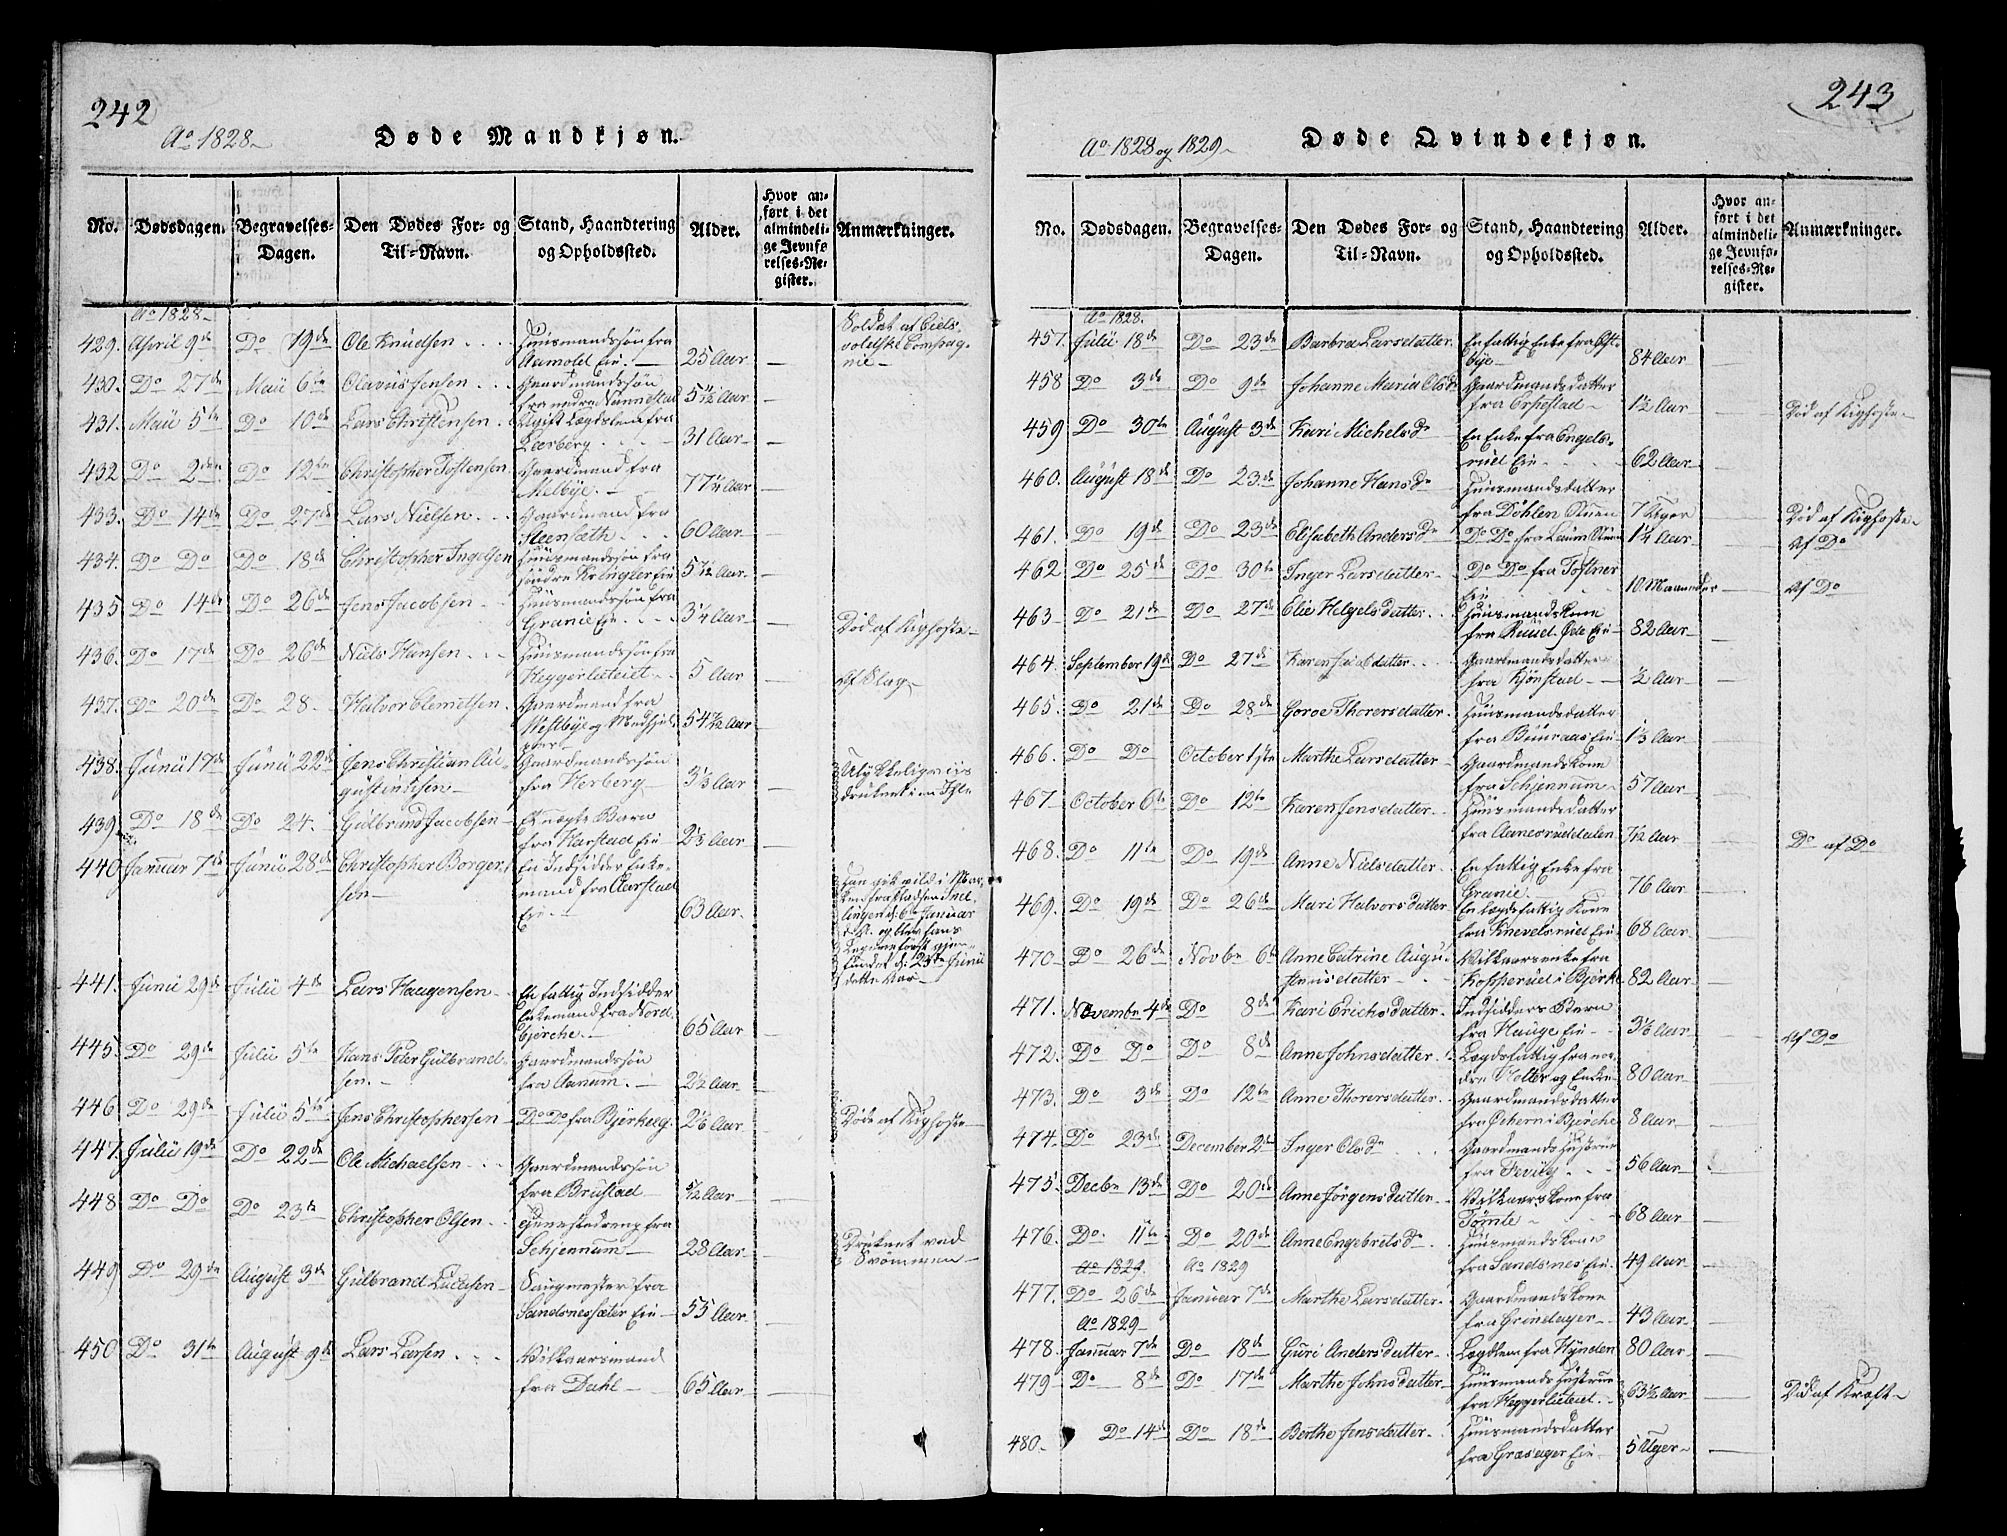 242
Ao 1828
Døde Mandkjøn.
No.
Dødsdagen.
Begravelses-
Dagen.
Den Dødes For- og
Til-Navn.
Stand, Haandtering
og Opholdssted.
Alder.
Hvor an-
ført i det
almindeli-
ge Jevnfø-
relses-Re-
gister.
Anmærkninger.
Ao 1828
429. April 9de Do 19de Ole Knudsen Huusmandssøn fra
Aamold Eie 25 Aar Soldat af Eids-
voldske Compag-
nie
430. Do 27de Maii 6te Olavus Jensen Gaardmandssøn
fra nedre Nannestad 5 1/2 Aar
431. Maii 5te Do 10de Lars Christensen Ugift Lægdslem fra
Leerberg 31 Aar
432 Do 2den Do 12te Christopher Tostensen Gaardmand fra
Melbye 77 1/4 Aar
433. Do 14de Do 27de Lars Nielsen Gaardmand fra
Steensæth 60 Aar
434. Do Do Do 18de Christopher Ingelsen Huusmandssøn fra
søndre Kringler Eie 5 1/2 Aar
435 Do 14de Do 26de Jens Jacobsen Huusmandssøn fra
Granie Eie 3 1/4 Aar Død af Kighoste
436. Do 17de Do 26de Niels Hansen Huusmandssøn fra
Heggerlieteiet 5 Aar Af Slag
437. Do 20de Do 28 Halvor Clemetsen Gaardmand fra
Westbye og Medhjel-
per 54 1/2 Aar
438. Junii 17de Junii 22de Jens Christian Au-
gustinusen Gaardmandssøn
fra Herberg 3 1/3 Aar Ulykkeligviis
druknet i en
439 Do 18de Do 24. Gulbrand Jacobsen Et uægte Barn
fra Harstad Eie 2 1/3 Aar
440 Januar 7de Junii 28de Christopher Borger-
sen En Indsidder Enke-
mand fra Aarstad
Eie 63 Aar Han gik vild i Mar-
ken fra
d: 6te Januar
d. A. og blev hans
Legeme først gjen-
fundet d: 23de Junii
dette Aar
441. Junii 29de Julii 4de Lars Haagensen En fattig Indsidder
Enkemand fra Nord
Bjerche 65 Aar
445. Do 29de Julii 5te Hans Peter Gulbrand-
sen. Gaardmandssøn
fra Aanum. 2 1/2 Aar
446 Do 29de Julii 5te Jens Christophersen Do Do fra Bjerkeeg 2 1/6 Aar Døde af Kighoste
447. Julii 19de Do 22de Ole Michaelsen Gaardmandssøn
fra Brustad 5/12 Aar
448 Do Do Do 23de Christopher Olsen Tjenestedreng fra
Schjennum 28 Aar Druknet ved
Svømmen
449 Do 29de August 3de Gulbrand Larsen Saugmester fra
Sandsnessæter Eie 55 Aar
450 Do 31te August 9de Lars Larsen Vilkaarsmand
fra Dahl 65 Aar
243
Ao 1828 og 1829
Døde Qvindekjøn.
No.
Dødsdagen.
Begravelses-
Dagen.
Den Dødes For- og
Til-Navn.
Stand, Haandtering
og Opholdssted.
Alder.
Hvor an-
ført i det
almindeli-
ge Jevnfø-
relses-Re-
gister.
Anmærkninger.
Ao 1828.
457. Julii 18de Do 23de Barbra Larsdatter En fattig Enke fra Øst-
bye 84 Aar
458 Do 3de Do 9de Johanne Maria Olsdr Gaardmandsdatter
fra Erpestad 1 1/2 Aar Død af Kighoste
459 Do 30te August 3de Kari Michelsdr En Enke fra Engels-
rud Eie 62 Aar
460. August 18de Do 23de Johanne Hansdr Huusmandsdatter
fra Døhlen 7 Uger Død af Kighoste
461. Do 19de Do 23de Elisabeth Andersdr Do Do fra 1 1/4 Aar Af Do
462 Do 25de Do 30te Inger Larsdatter Do Do fra Tostner
Eie 10 Maaneder Af Do
463 Do 21de Do 27de Elie Helgelsdatter Huusmandskone
fra Ruud Øde Eie 82 Aar
464. September 19de Do 27de Karen Jacobdatter Gaardmandsdatter
fra Kjønstad 1/2 Aar
465. Do 21de Do 28de Goroe Thorersdatter Huusmandsdatter
fra Bunraas Eie 1 1/3 Aar
466. Do Do October 1ste Marthe Larsdatter Gaardmandskone
fra Schjennum 57 Aar
467. October 6te Do 12te Karen Jensdatter Huusmandsdatter
fra Aanesruddalen 7/12 Aar Do af Do
468. Do 11te Do 19de Anne Nielsdatter En fattig Enke fra
Granie 76 Aar
469. Do 19de Do 26de Mari Halvorsdatter En lægdsfattig Kone
fra Knevelsrud Eie 68 Aar
470 Do 26de Novbr 6te Anne Catrine Augu-
stinusdatter Vilkaarsenke fra
Kopperud i Bjerke 82 Aar
471. Novembr 4de Do 8de Kari Erichsdatter Indsidders Barn
fra Hauge Eie 3 1/6 Aar Af Do
472. Do Do Do 8de Anne Johnsdatter Lægdsfattig fra nor-
dre Holter og Enke 80 Aar
473. Do 3de Do 12te Anne Thorersdatter Gaardmandsdatter
fra Ochern i Bjerche 8 Aar
474. Do 23de December 2den Inger Olsdr Gaardmands Hustrue
fra 56 Aar
475. Decbr 13de Do 20de Anne Jørgensdatter Vilkaarskone fra
Tømte 68 Aar
476. Do 11te Do 20de Anne Engebretsdr Huusmandskone
fra Sandsnes Eie 49 Aar
Ao 1829. Ao 1829
477. Do 26de Januar 7de Marthe Larsdatter Gaardmandskone
fra Grindager 43 Aar
Ao 1829
478. Januar 7de Do 18de Guri Andersdatter Lægdlem fra Hynden 80 Aar
479 Do 8de Do 17de Marthe Johnsdatter Huusmands Hustrue
fra Heggerlieteiet 63 1/2 Aar Død af Kræft
480 Do 14de Do 18de Berthe Jensdatter Huusmandsdatter
fra Grasager Eie 5 Uger